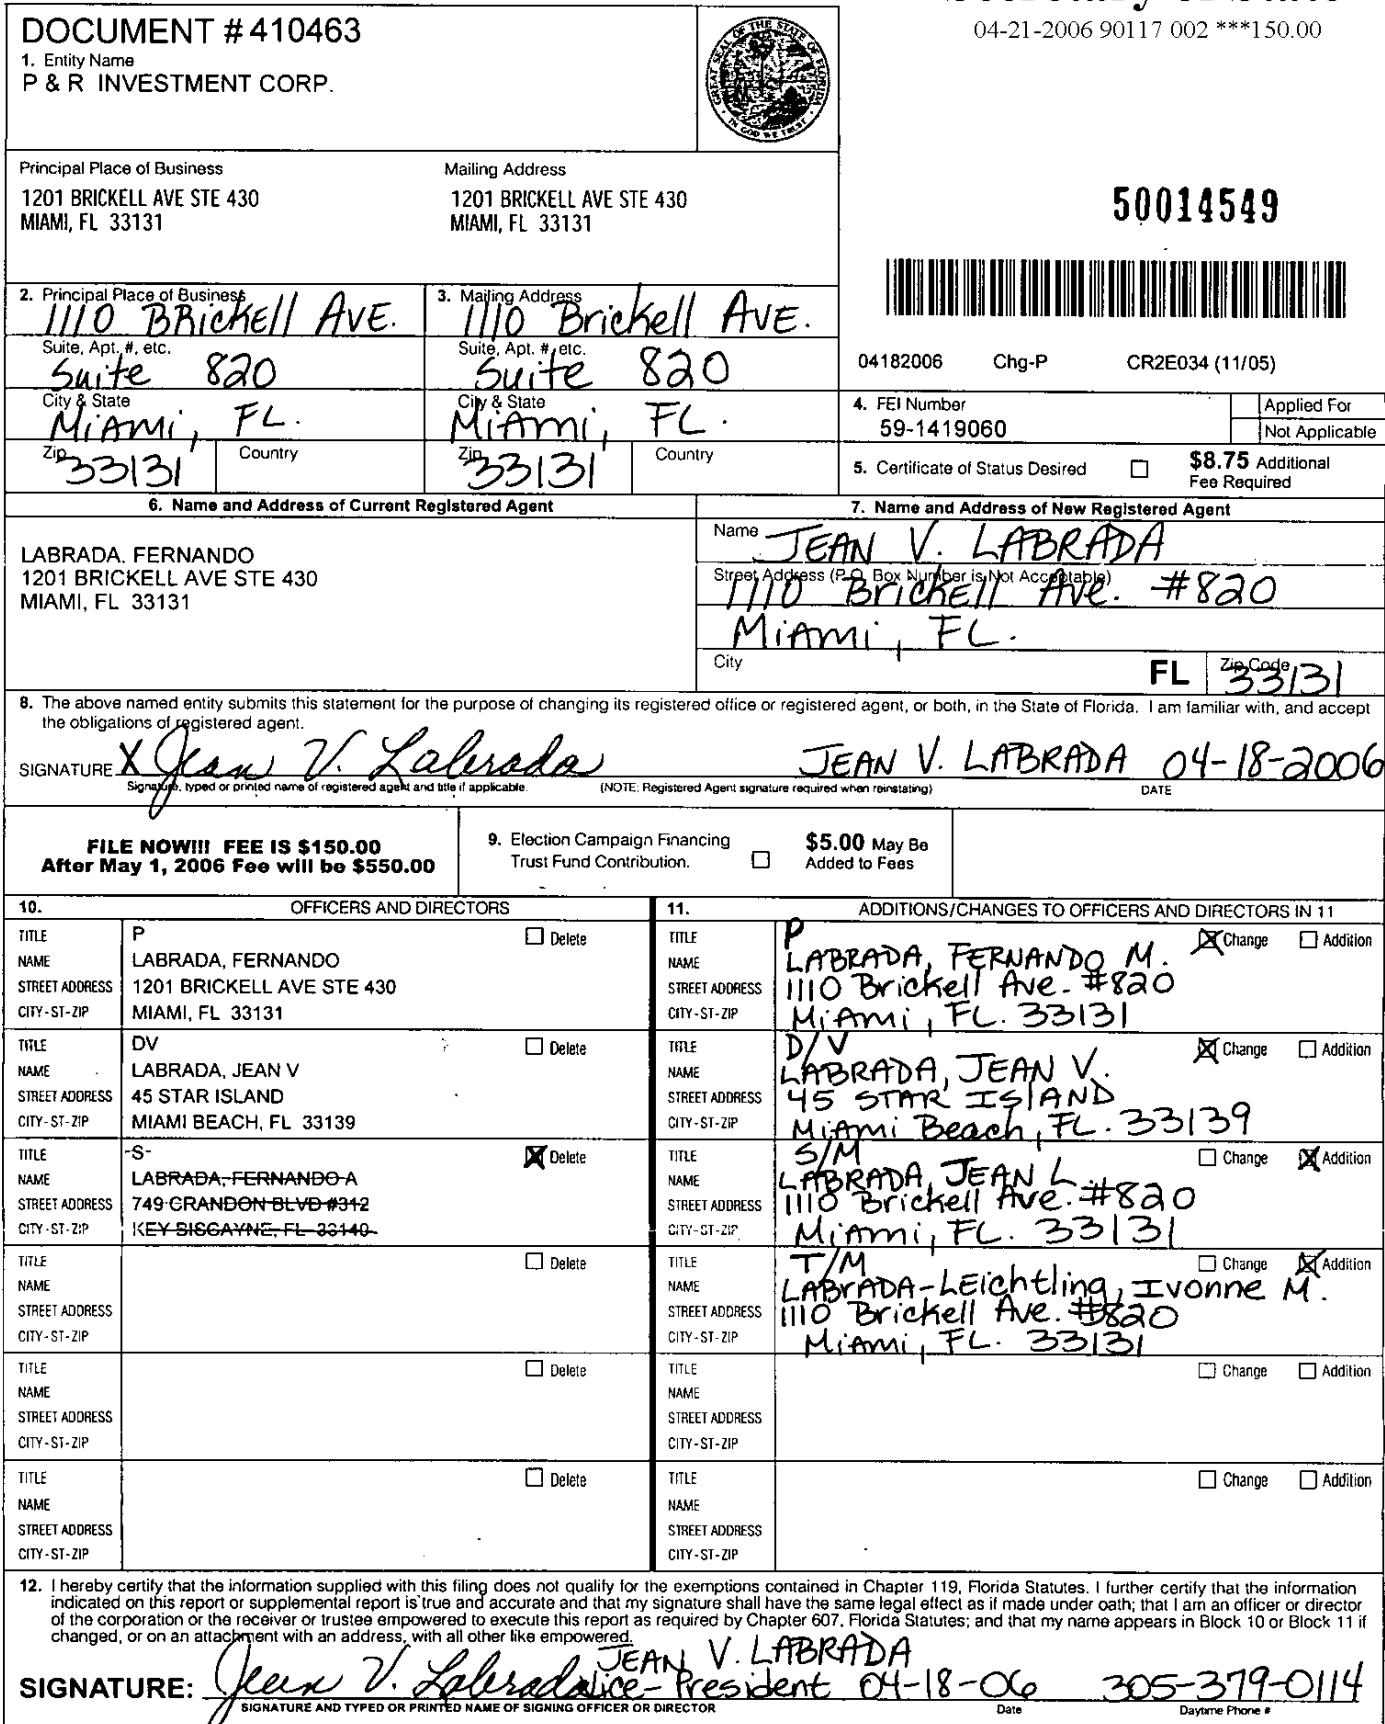 DOCUMENT # 410463
1. Entity Name
P & R INVESTMENT CORP.
GREAT SEAL OF THE STATE OF FLORIDA
IN GOD WE TRUST
04-21-2006 90117 002 ***150.00
Principal Place of Business
1201 BRICKELL AVE STE 430
MIAMI, FL 33131
Mailing Address
1201 BRICKELL AVE STE 430
MIAMI, FL 33131
50014549
2. Principal Place of Business
1110 BRickEll AVE.
Suite, Apt. #, etc.
Suite 820
City & State
MiAmi, FL.
Zip 33131 Country
3. Mailing Address
1110 Brickell AVE.
Suite, Apt. #, etc.
Suite 820
City & State
MiAmi, FL.
Zip 33131 Country
04182006 Chg-P CR2E034 (11/05)
4. FEI Number
59-1419060
Applied For
Not Applicable
5. Certificate of Status Desired
$8.75 Additional
Fee Required
6. Name and Address of Current Registered Agent
LABRADA, FERNANDO
1201 BRICKELL AVE STE 430
MIAMI, FL 33131
7. Name and Address of New Registered Agent
Name JEAN V. LABRADA
Street Address (P.O. Box Number is Not Acceptable)
1110 BrickEll Ave. #820
MiAmi, FL.
City FL Zip Code 33131
8. The above named entity submits this statement for the purpose of changing its registered office or registered agent, or both, in the State of Florida. I am familiar with, and accept
the obligations of registered agent.
SIGNATURE X Jean V. Labrada JEAN V. LABRADA 04-18-2006
Signature, typed or printed name of registered agent and title if applicable. (NOTE: Registered Agent signature required when reinstating) DATE
FILE NOW!!! FEE IS $150.00
After May 1, 2006 Fee will be $550.00
9. Election Campaign Financing
Trust Fund Contribution.
$5.00 May Be
Added to Fees
10. OFFICERS AND DIRECTORS
TITLE P Delete
NAME LABRADA, FERNANDO
STREET ADDRESS 1201 BRICKELL AVE STE 430
CITY-ST-ZIP MIAMI, FL 33131
TITLE DV Delete
NAME LABRADA, JEAN V
STREET ADDRESS 45 STAR ISLAND
CITY-ST-ZIP MIAMI BEACH, FL 33139
TITLE -S- X Delete
NAME LABRADA, FERNANDO A
STREET ADDRESS 749 CRANDON BLVD #312
CITY-ST-ZIP KEY BISCAYNE, FL 33149
TITLE Delete
NAME
STREET ADDRESS
CITY-ST-ZIP
TITLE Delete
NAME
STREET ADDRESS
CITY-ST-ZIP
TITLE Delete
NAME
STREET ADDRESS
CITY-ST-ZIP
11. ADDITIONS/CHANGES TO OFFICERS AND DIRECTORS IN 11
TITLE P X Change Addition
NAME LABRADA, FERNANDO M.
STREET ADDRESS 1110 Brickell Ave. #820
CITY-ST-ZIP MiAmi, FL. 33131
TITLE D/V X Change Addition
NAME LABRADA, JEAN V.
STREET ADDRESS 45 STAR ISlAND
CITY-ST-ZIP MiAmi Beach, FL. 33139
TITLE S/M Change X Addition
NAME LABRADA, JEAN L.
STREET ADDRESS 1110 Brickell Ave. #820
CITY-ST-ZIP MiAmi, FL. 33131
TITLE T/M Change X Addition
NAME LABrADA-LEichtling, Ivonne M.
STREET ADDRESS 1110 Brickell Ave. #820
CITY-ST-ZIP MiAmi, FL. 33131
TITLE Change Addition
NAME
STREET ADDRESS
CITY-ST-ZIP
TITLE Change Addition
NAME
STREET ADDRESS
CITY-ST-ZIP
12. I hereby certify that the information supplied with this filing does not qualify for the exemptions contained in Chapter 119, Florida Statutes. I further certify that the information
indicated on this report or supplemental report is true and accurate and that my signature shall have the same legal effect as if made under oath; that I am an officer or director
of the corporation or the receiver or trustee empowered to execute this report as required by Chapter 607, Florida Statutes; and that my name appears in Block 10 or Block 11 if
changed, or on an attachment with an address, with all other like empowered.
JEAN V. LABRADA
SIGNATURE: Jean V. Labrada Vice-President 04-18-06 305-379-0114
SIGNATURE AND TYPED OR PRINTED NAME OF SIGNING OFFICER OR DIRECTOR Date Daytime Phone #